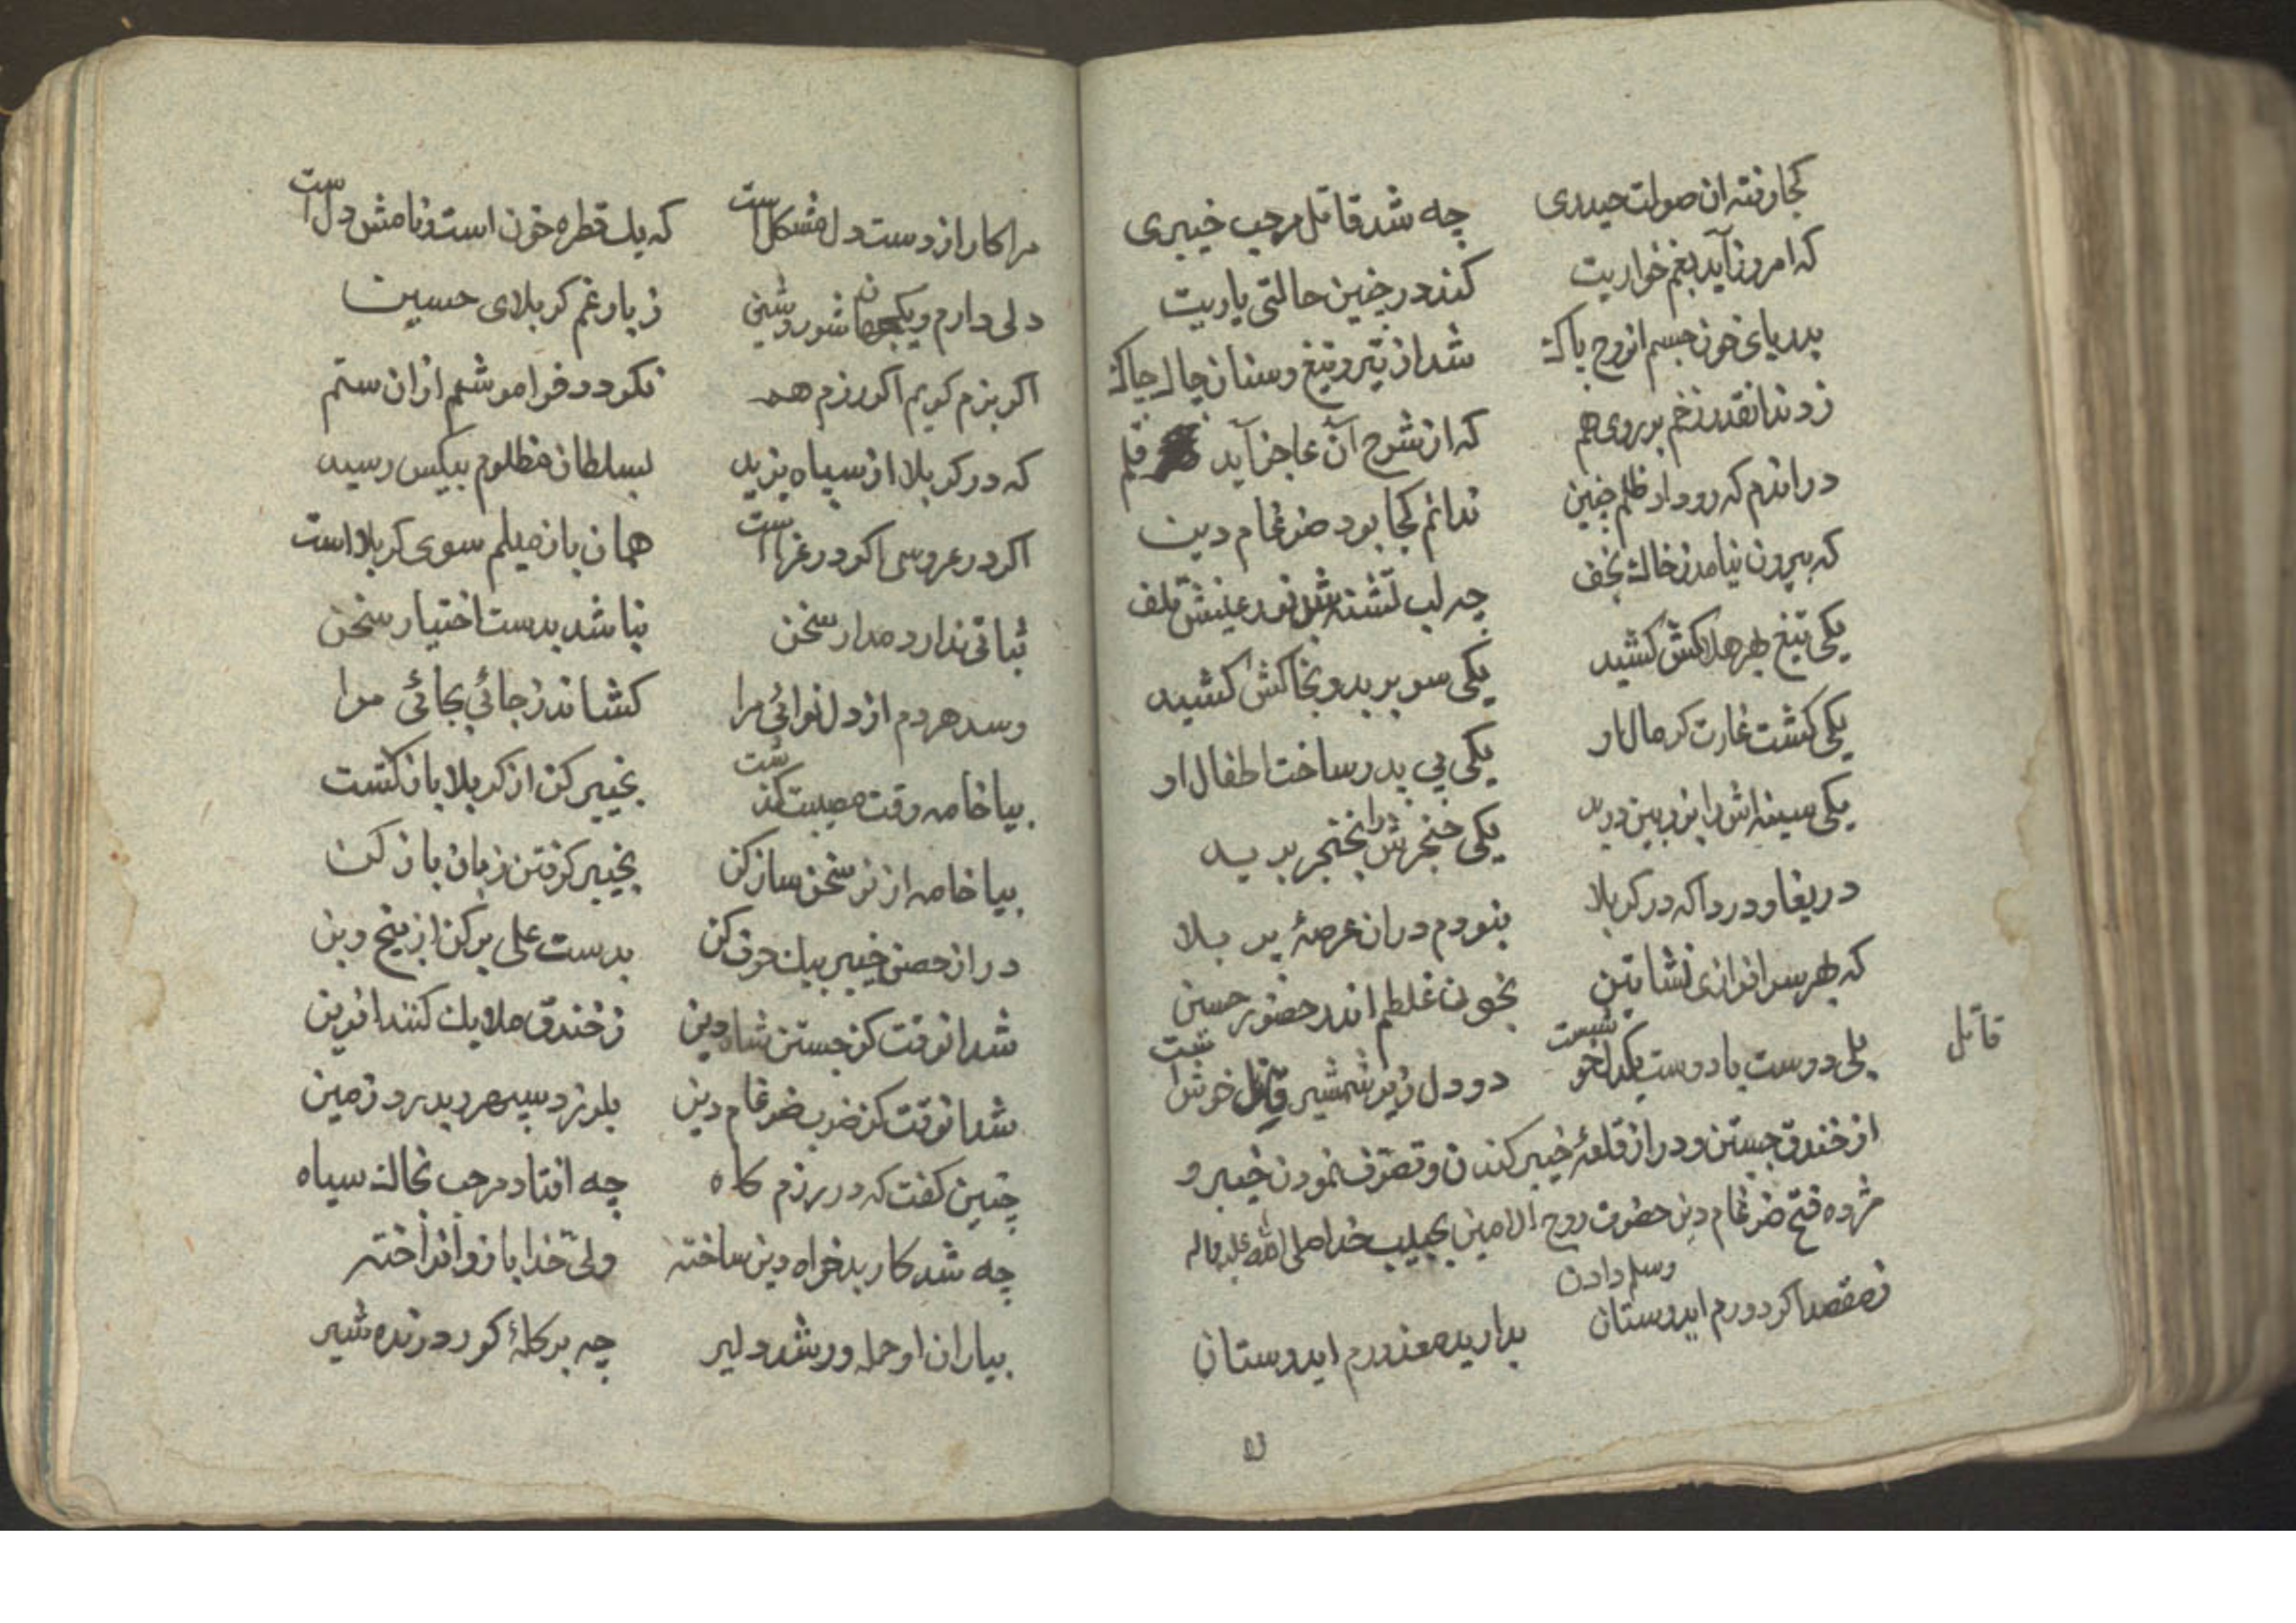 کجا رفته ان صولت حیدری چه شد قاتل مرحب خیبری
که امروز آید بغم خواریت کند در چنین حالتی یاریت
بدریای خون جسم انروح پاک شد از تیر و تیغ و سنان چاک چاک
زدند انقدر زخم بر روی هم که از شرح آن عاجز آید قلم
در اندم که رو داد ظلم چنین ندانم کجا بود ضرغام دین
که بیرون نیامد ز خاک نجف چه لب تشنه شد نور عینش تلف
یکی تیغ بهر هلاکش کشید یکی سر برید و بخاکش کشید
یکی کشت غارت کر مال او یکی بی پدر ساخت اطفال او
یکی سینه اش را درید یکی خنجرش را بخنجر برید
دریغا و دردا که در کربلا بنودم دران عرصهٔ پر بلا
که بهر سرافرازی نشاتین بخون غلطم اندر حضور حسین
بلی دوست با دوست یکدل خوشست دو دل زیر شمشیر قاتل خوش است
قاتل
از خندق جستن و در از قلعهٔ خیبر کندن و تصرف نمودن خیبر و
مژده فتح ضرغام دین حضرت روح الامین بحبیب خدا صلی الله علیه واله
وسلم دادن
ز مقصد اکر دورم ایدوستان بدارید معذورم ایدوستان
مرا کار از دست دل مشکل است که یک قطره خون است و نامش دل است
دلی دارم و یکجهان شور و شین ز بار غم کربلای حسین
اکر بزم کویم اکر رزم هم نکردد فراموشم از ان ستم
که در کربلا از سپاه یزید بسلطان مظلوم بیکس رسید
اکر در عروسی اکر در عزاست همان باز میلم سوی کربلا است
ثباتی ندارد مدار سخن نباشد بدست اختیار سخن
رسد هر دم از دل نوائی مرا کشاند ز جائی بجائی مرا
بیا خامه وقت مصیبت کذشت بخیبر کن از کربلا بازکشت
بیا خامه از نو سخن ساز کن بخیبر کرفتن زبان باز کن
در از حصن خیبر بیک حرف کن بدست علی بر کن از بیخ و بن
شد انوقت کز جستن شاه دین ز خندق ملایک کنند افرین
شد انوقت کز ضرب ضرغام دین بلرزد سپهر و بدرد زمین
چنین کفت که در رزم کاه چه افتاد مرحب بخاک سیاه
چه شد کار بدخواه دین ساخته ولیّ خدا بازو انداخته
بیاران او حمله ور شد دلیر چه بر کلهٔ کور درنده شیر